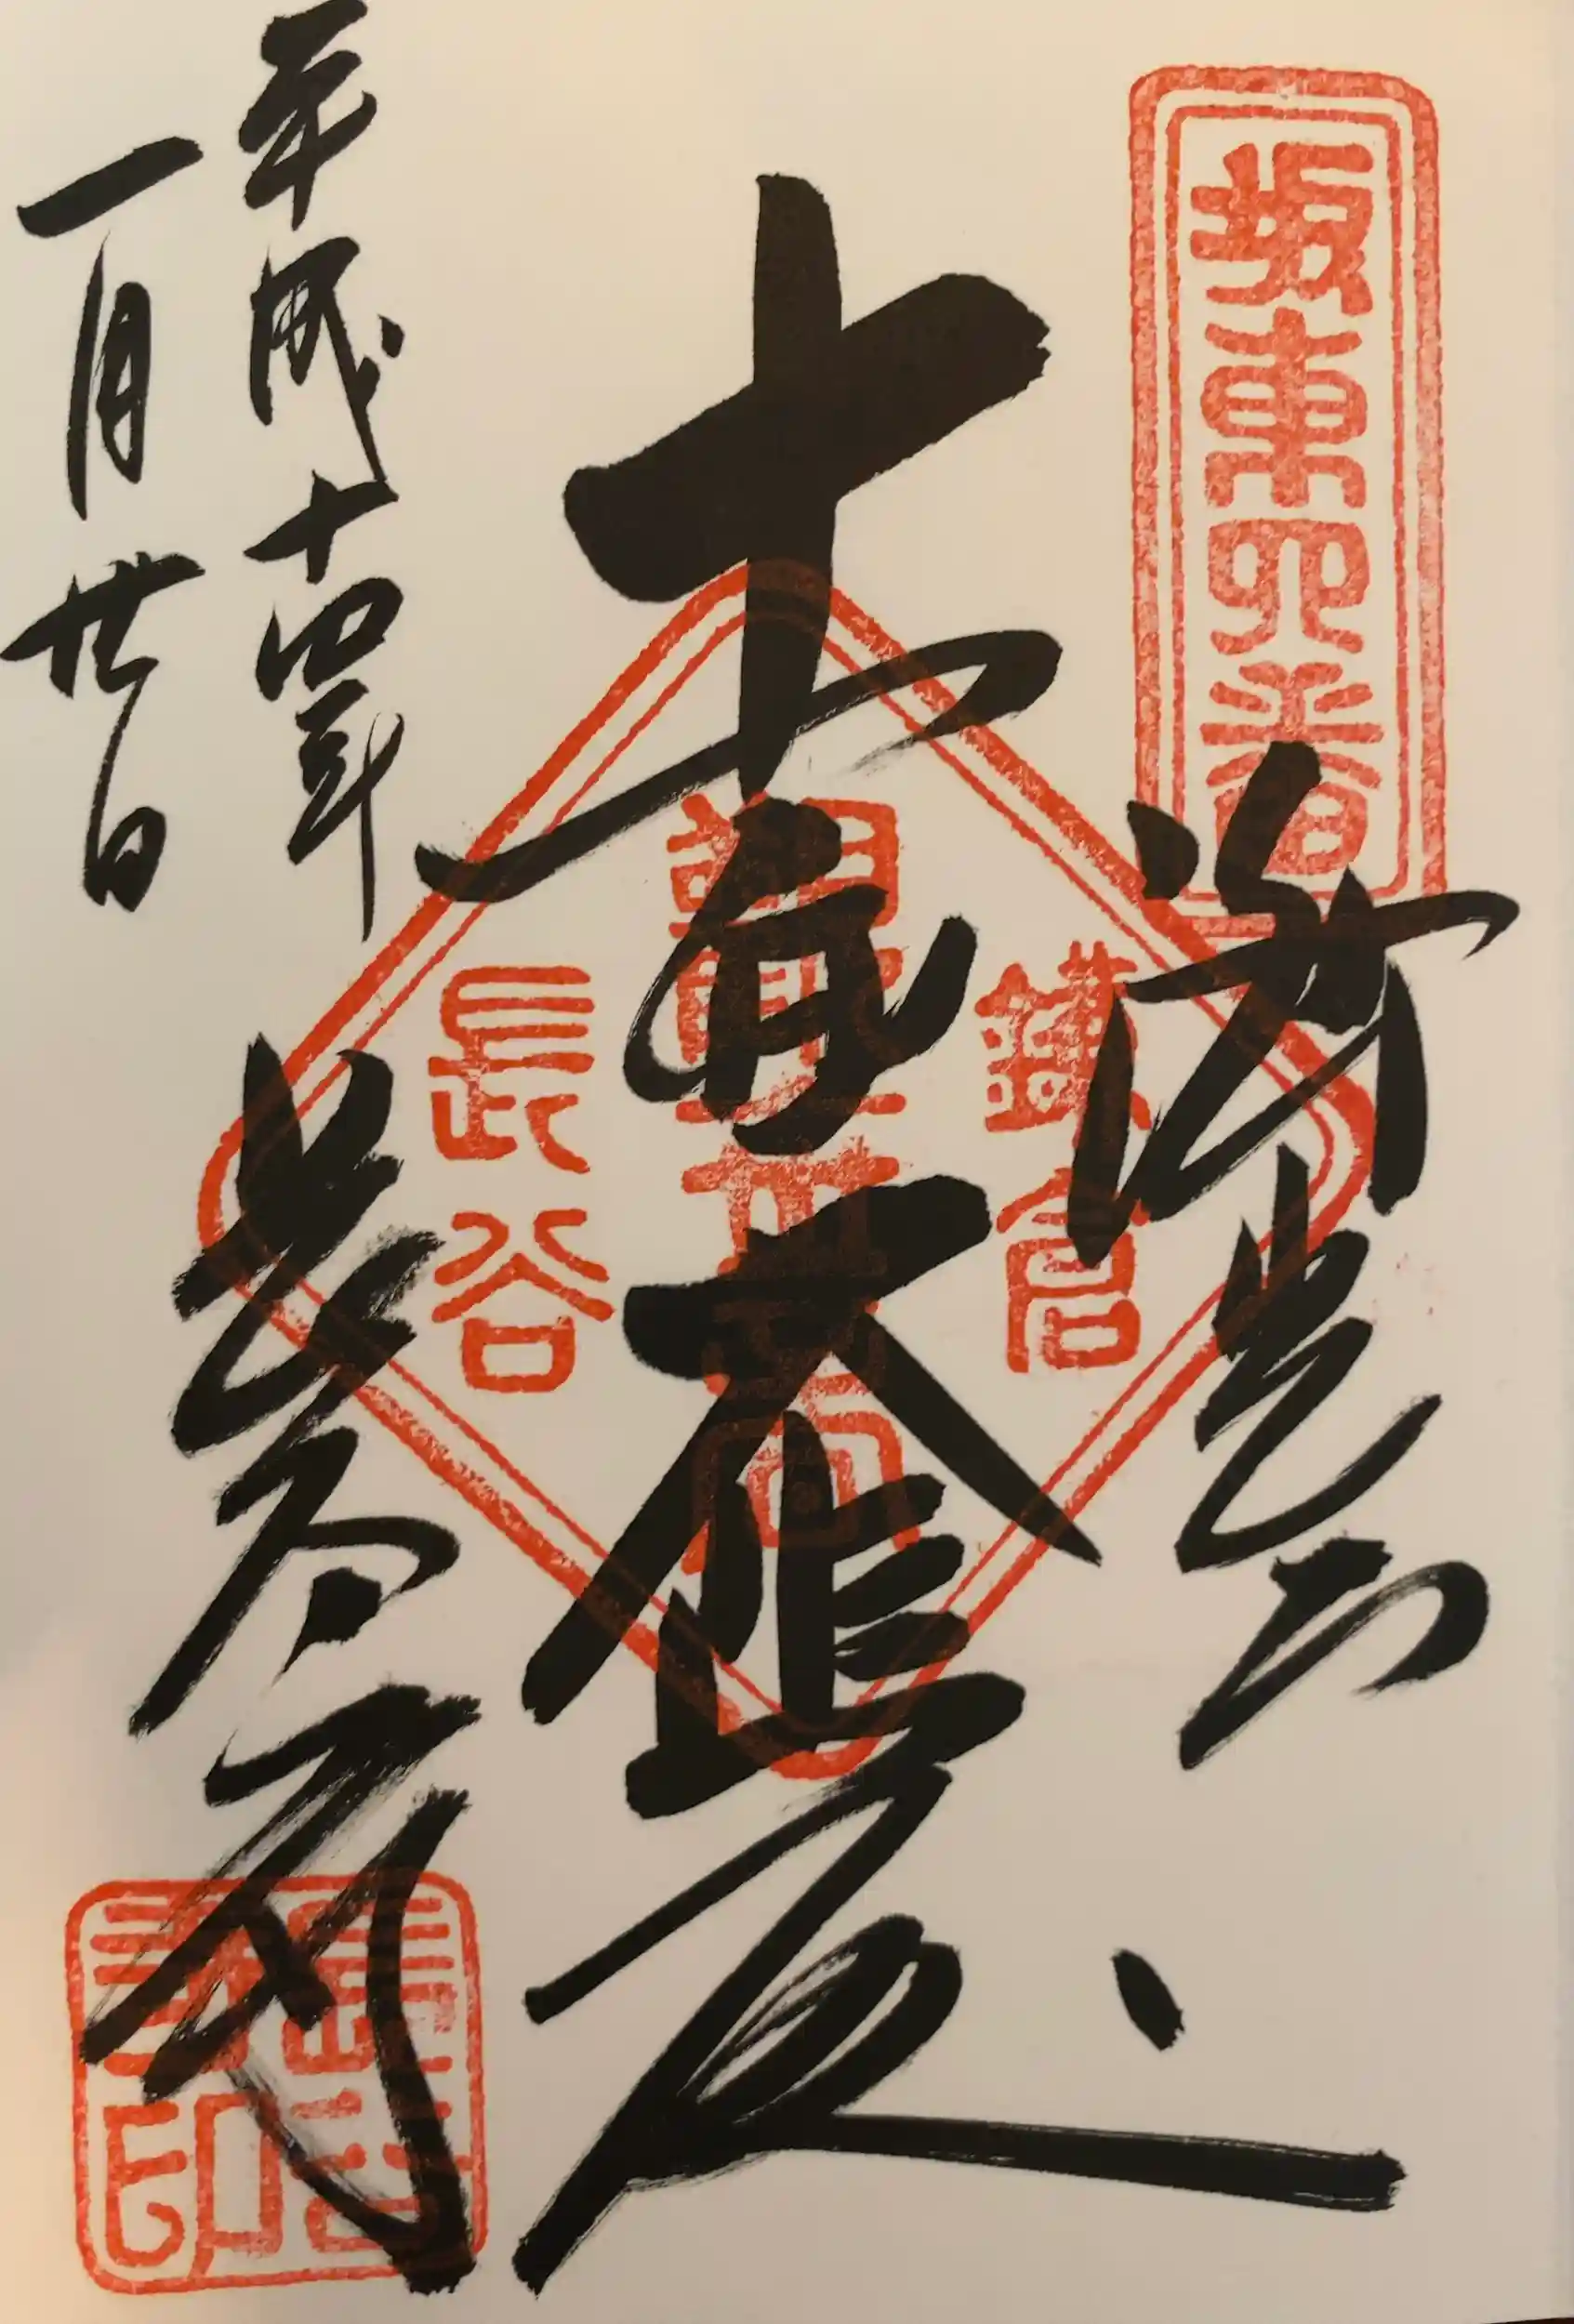 坂東四番
海光山
鎌倉
十一面大悲殿
長谷
長谷寺
長谷寺印
平成十四年
一月廿日